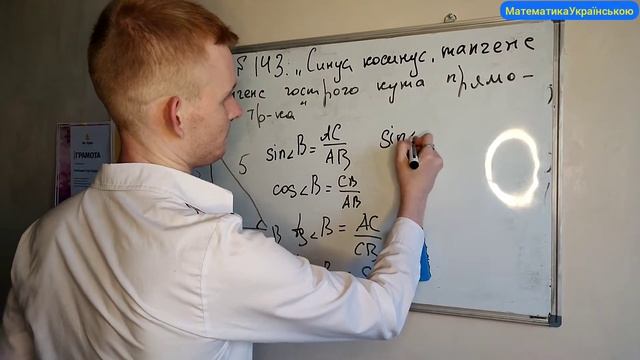 МатематикаУкраїнською
§ 143. „Синус косинус, тангенс
генс гострого кута прямо-
тр-ка"
ГРАМОТА
5
sin∠B = AC/AB
sin∠
cos∠B = CB/AB
B
tg∠B = AC/CB